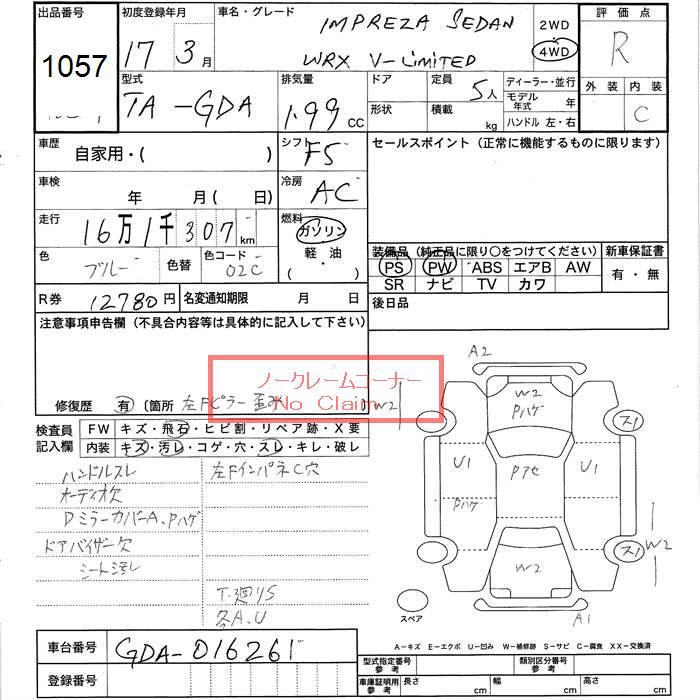 出品番号
1057
初度登録年月
17 3月
車名・グレード
IMPREZA SEDAN
WRX V-LIMITED
2WD
4WD
評価点
R
外装 内装
C
型式
TA-GDA
排気量
1.99 CC
ドア
形状
定員 5人
積載 kg
ディーラー・並行
モデル年式 年
ハンドル 左・右
車歴
自家用・( )
シフト F5
セールスポイント (正常に機能するものに限ります)
車検 年 月 ( 日)
冷房 AC
走行 16万1千307km
燃料
ガソリン
軽油
( ・ )
色 ブルー 色替 色コード 02C
装備品 (純正品に限り○をつけてください)
PS PW ABS エアB AW
SR ナビ TV カワ
新車保証書
有・無
R券 12780円 名変通知期限 月 日
後日品
注意事項申告欄 (不具合内容等は具体的に記入して下さい)
ノークレームコーナー
No Claim
修復歴 有 〔箇所 左Fピラー歪み
W2
検査員
記入欄
FW キズ・飛石・ヒビ割・リペア跡・X要
内装 キズ・汚レ・コゲ・穴・スレ・キレ・破レ
ハンドルスレ
左FインパネC穴
オーディオ欠
DミラーカバーA、Pハゲ
ドアバイザー欠
シート汚レ
T.廻りS
各A.U
A2
W2
Pハゲ
U1
Pハゲ
Pアセ
U1
ス1
ス1
W2
W2
A1
スペア
A-キズ E-エクボ U-凹み W-補修跡 S-サビ C-腐食 XX-交換済
車台番号 GDA-016261
登録番号
型式指定番号
参考
類別区分番号
参考
車庫証明用
参考
長さ cm 幅 cm 高さ cm